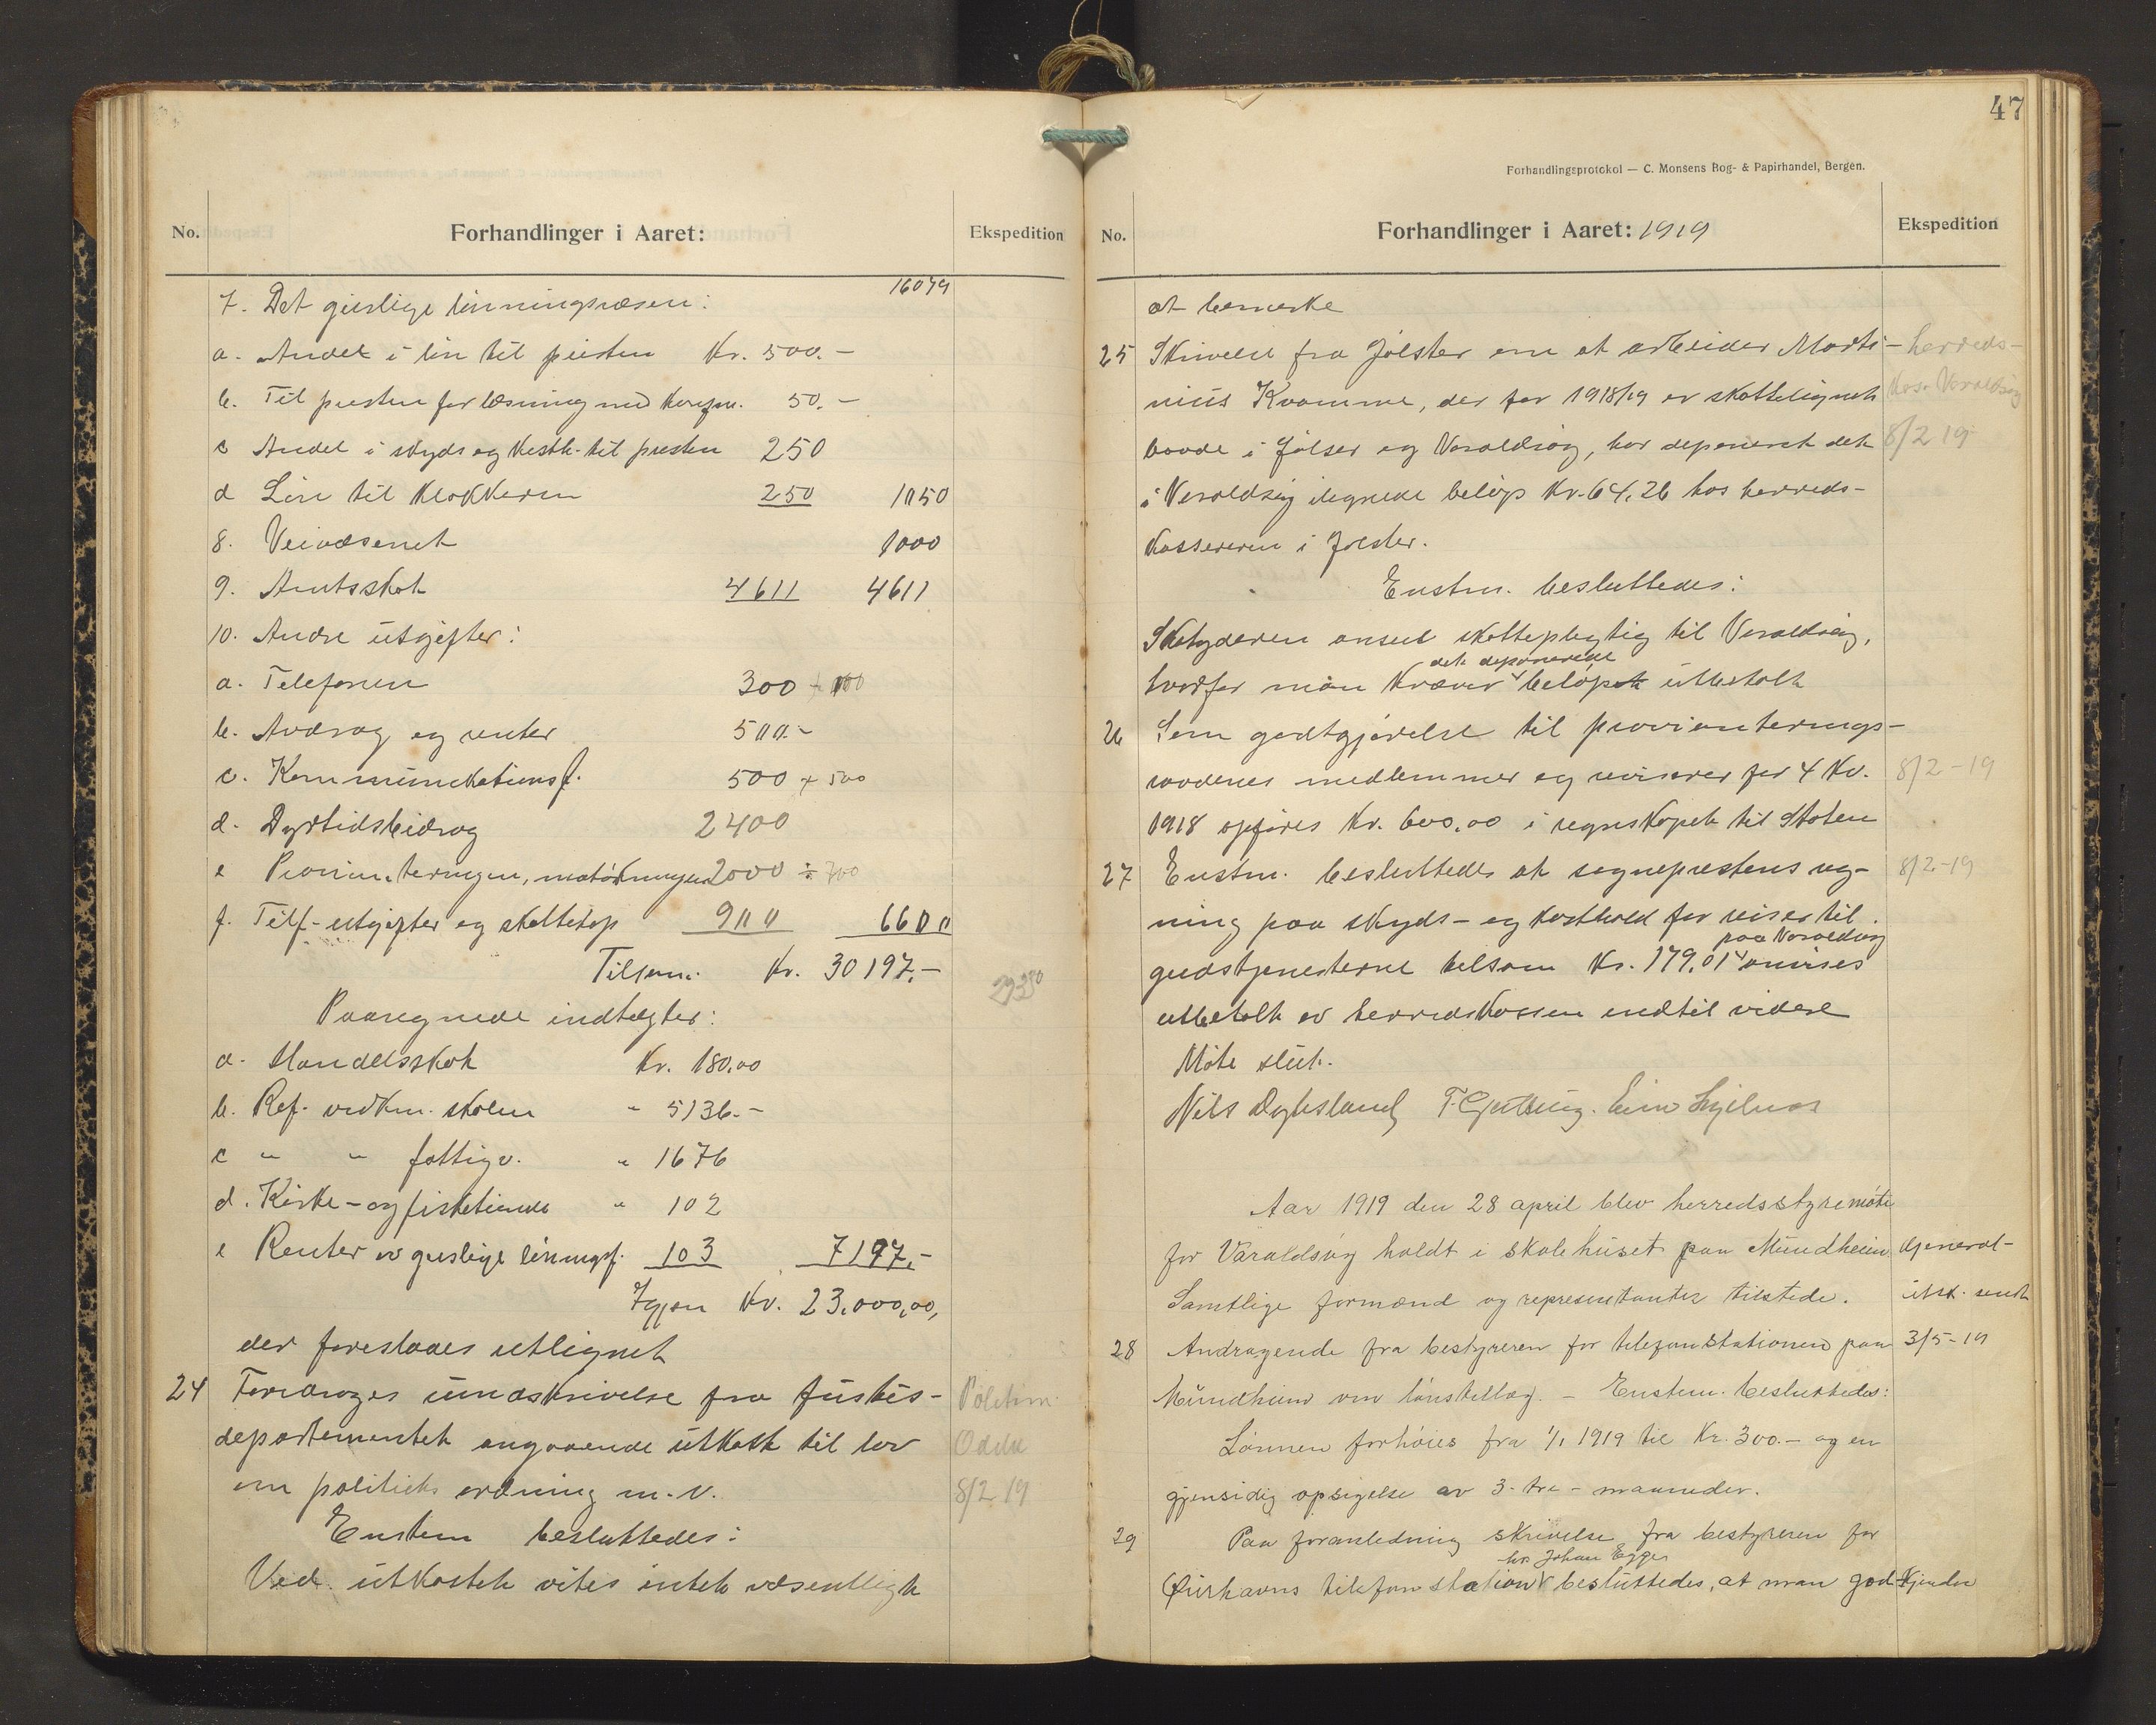 No. Forhandlinger i Aaret: Ekspedition
16079
7. Det geislige lønningsvæsen:
a. Andel i løn til presten Kr. 500.-
b. Til presten for læsning med konfirm. 50.-
c Andel i skyds og kosth. til presten 250
d Løn til klokkeren 250 1050
8. Veivæsenet 1000
9. Amtsskat 4611 4611
10. Andre utgifter:
a. Telefonen 300 + 100
b. Avdrag og renter 500.-
c. Kommunikationsf. 500 + 500
d. Dyrtidsbidrag 2400
e Provianteringen, 2000 ÷ 700
f. Tilf-utgifter og skattetap 900 6600
Tilsam. Kr. 30197.-
Paaregnede indtægter:
a. Handelsskat Kr. 180.00
b. Ref. vedkm. skolen " 5136.-
c " " fattigv. " 1676
d. Kirke- og fisketiende " 102
e Renter av geislige lønningsf. 103 7197.-
Igjen Kr. 23.000,00,
der foreslaaes utlignet
24 Foredroges rundskrivelse fra Justis- Politim.
departementet angaaende utkast til lov Odda
om politiets ordning m.v. 8/2 19
Enstem besluttedes:
Ved utkastet vites intet væsentligt
47
Forhandlingsprotokol — C. Monsens Bog- & Papirhandel, Bergen.
No. Forhandlinger i Aaret: 1919 Ekspedition
at bemerke
25 Skrivelse fra Jølster om at arbeider Marti- herreds-
nius Kvamme, der for 1918/19 er skattelignet kass. Varaldsøy
baade i Jølser og Varaldsøy, har deponeret det 8/2 19
i Varaldsøy ilignede beløp Kr. 64,26 hos herreds-
kassereren i Jølster.
Enstm. besluttedes:
Skatyderen ansees skattepligtig til Varaldsøy,
det deponerede
hvorfor man kræver beløpet utbetalt
26 Som godtgjørelse til provianterings-
raadenes medlemmer og revisorer for 4 Kv. 8/2-19
1918 opføres Kr. 600,00 i regnskapet til Staten
27 Enstm. besluttedes at sogneprestens reg- 8/2-19
ning paa skyds- og kosthold for reiser til
paa Varaldsøy
gudstjenesterne tilsam Kr. 179,01 anvises
utbetalt av herredskassen indtil videre
Møte slut.
Nils Dybsland
Aar 1919 den 28 april blev herredsstyremøte
for Varaldsøy holdt i skolehuset paa Mundheim General-
Samtlige formænd og representanter tilstede. utsk. sendt
28 Andragende fra bestyreren for telefonstationen paa 3/5-19
Mundheim om lønstillæg. - Enstem. besluttedes:
Lønnen forhøies fra 1/1 1919 til Kr. 300.- og en
gjensidig opsigelse av 3- tre - maaneder.
29 Paa foranledning skrivelse fra bestyreren for
hr. Johan Egge
telefonstation besluttedes, at man godkjender